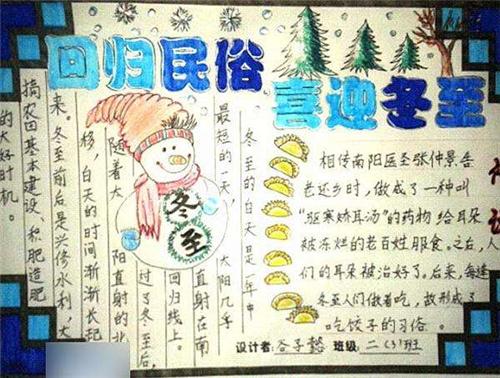 回归民俗
喜迎冬至
冬至
冬至的白天是一年中
最短的一天，太阳几乎
直射在南
回归线上。
过了冬至后，
随着太阳直射的北
移，白天的时间渐渐长起
来。冬至前后是兴修水利，大
搞农田基本建设、积肥造肥
的大好时机。
相传南阳医圣张仲景告
老还乡时，做成了一种叫
“驱寒矫耳汤”的药物给耳朵
被冻烂的老百姓服食。之后，人
们的耳朵被治好了。后来，每逢
冬至人们做着吃，故形成了
吃饺子的习俗。
设计者：谷子懿 班级：二（3）班